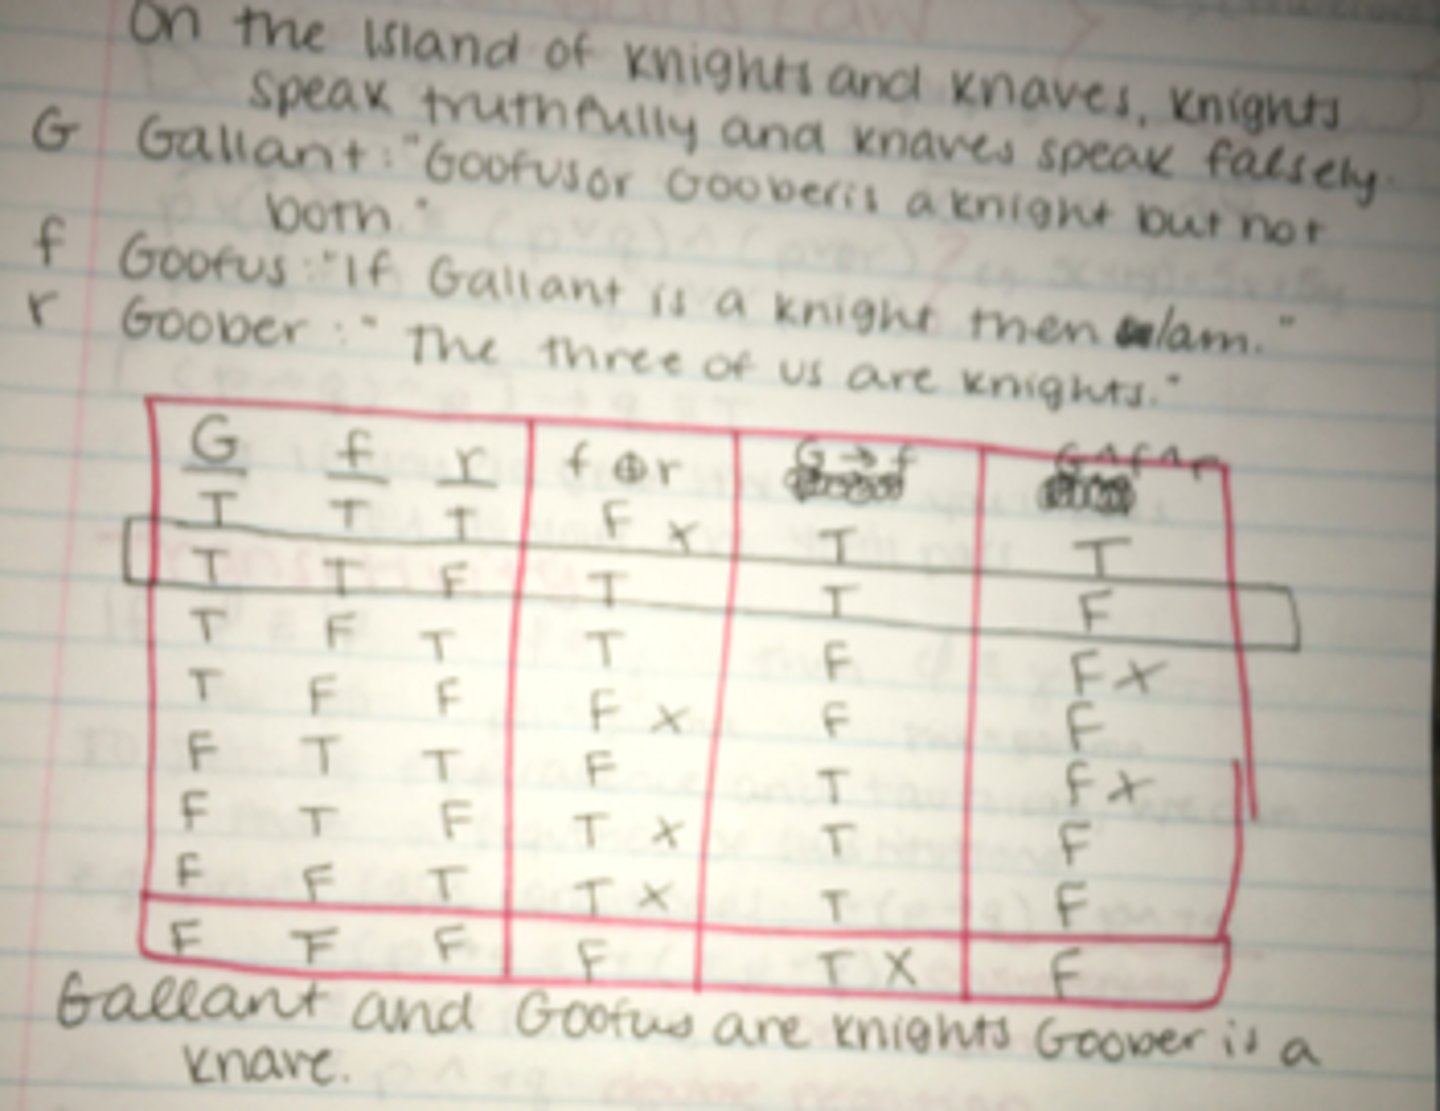 On the Island of knights and knaves, knights
speak truthfully and knaves speak falsely.
G Gallant: "Goofus or Goober is a knight but not
both."
f Goofus: "If Gallant is a knight then I am."
r Goober: "The three of us are knights."
G f r f ⊕ r G → f G ^ f ^ r
T T T F X T T
T T F T T F
T F T T F F X
T F F F X F F
F T T F T F X
F T F T X T F
F F T T X T F
F F F F T X F
Gallant and Goofus are knights Goober is a
knave.